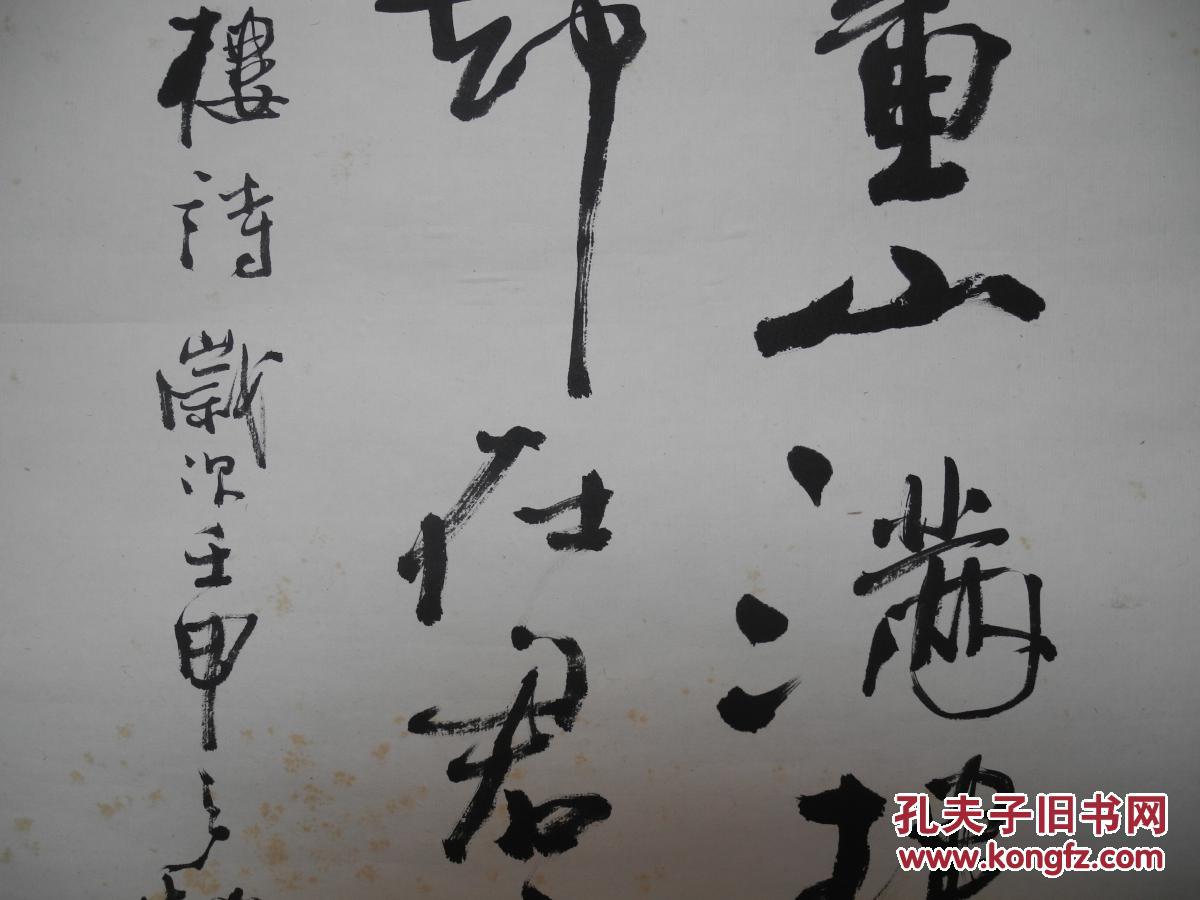 重山滿
却在君
樓詩歲次壬申之
孔夫子旧书网
www.kongfz.com